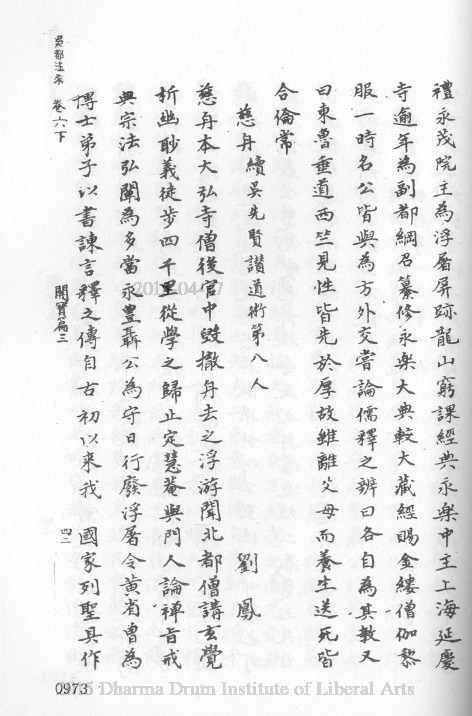 禮永茂院主為浮屠屏跡龍山窮課經典永樂中主上海延慶
寺逾年為副都綱召纂修永樂大典較大藏經賜金縷僧伽黎
服一時名公皆與為方外交嘗論儒釋之辨曰各自為其教又
曰東魯垂道西竺見性皆先於厚故雖離父母而養生送死皆
合倫常
慈舟 續吳先賢讚道術第八人 劉鳳
慈舟本大弘寺僧後官中毀撤舟去之浮游聞北都僧講玄覺
析幽眇義徒步四千里從學之歸止定慧菴與門人論禪首戒
典宗法弘闡為多當永豐聶公為守日行廢浮屠令黃省曾為
博士弟子以書諫言釋之傳自古初以來我 國家列聖具作
吳都法乘 卷六下 開寶篇三 四二
2012.04.27
0973
Dharma Drum Institute of Liberal Arts